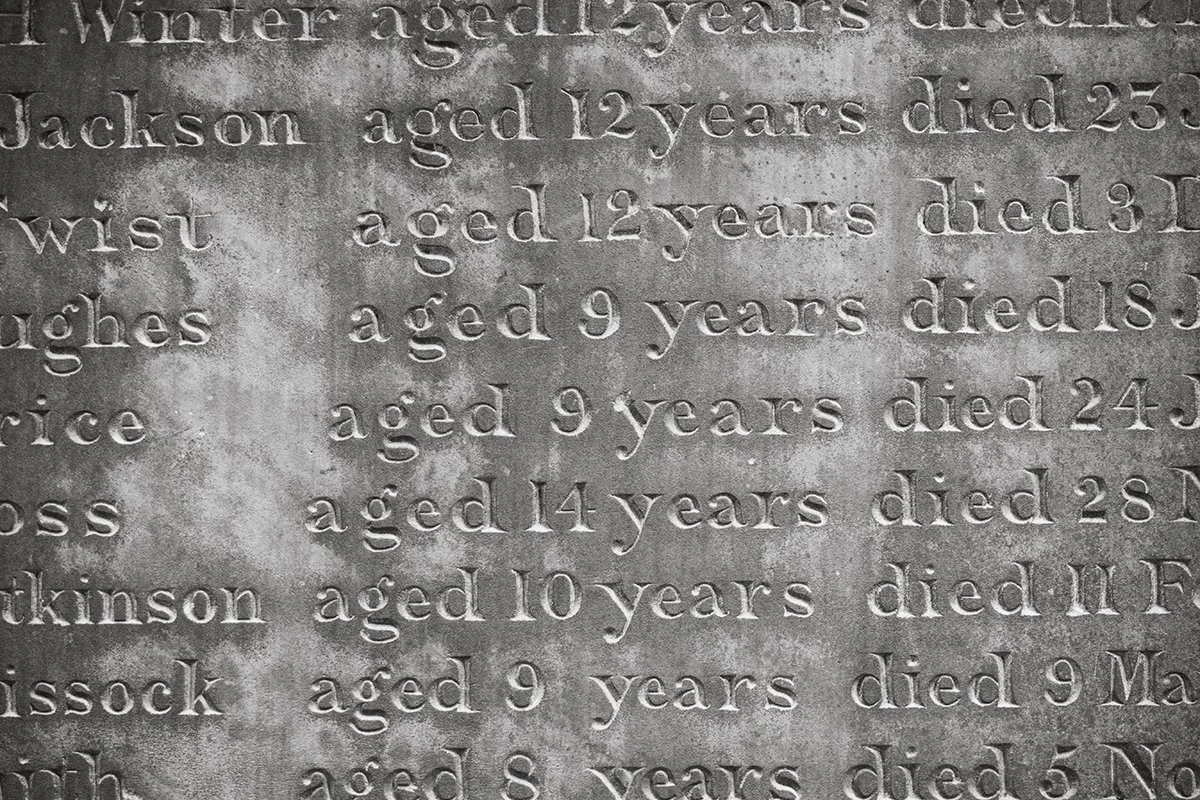 H Winter aged 12 years died 1
Jackson aged 12 years died 23 J
wist aged 12 years died 3 D
ughes aged 9 years died 18 J
rice aged 9 years died 24 J
oss aged 14 years died 28 N
tkinson aged 10 years died 11 F
issock aged 9 years died 9 Ma
irth aged 8 years died 5 No